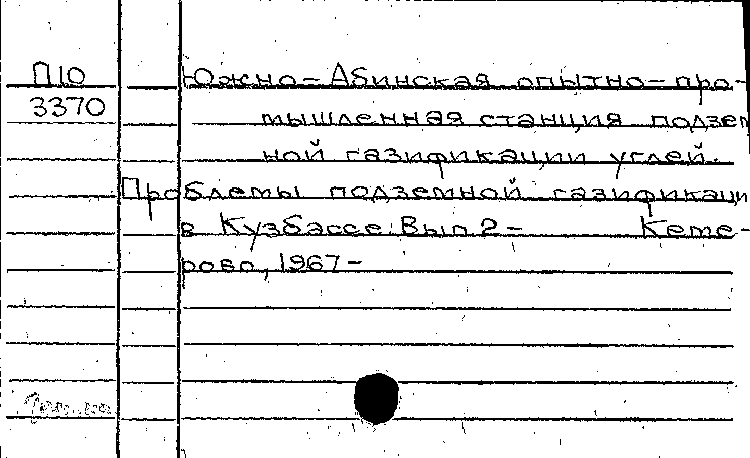 П10
3370
Южно-Абинская опытно-про-
мышленная станция подзем
ной газификации углей.
Проблемы подземной газификаци
в Кузбассе. Вып 2- Кеме-
рово, 1967-